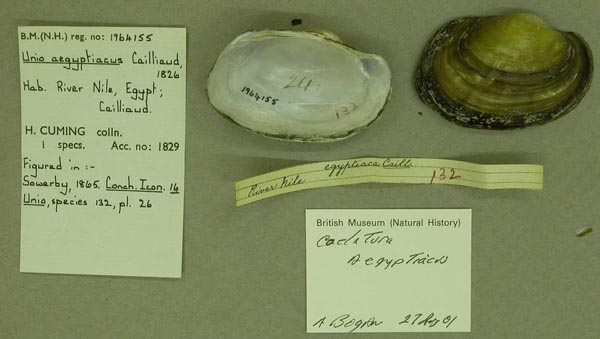 B.M.(N.H.) reg. no: 1964155
Unio aegyptiacus Cailliaud,
1826
Hab. River Nile, Egypt;
Cailliaud.
H. CUMING colln.
1 specs. Acc. no: 1829
Figured in :-
Sowerby, 1865. Conch. Icon. 16
Unio, species 132, pl. 26
24
1964155
132
egyptiaca Caill.
River Nile
132
British Museum (Natural History)
Caelatura
Aegyptiacus
A Bogan 27 Aug 01